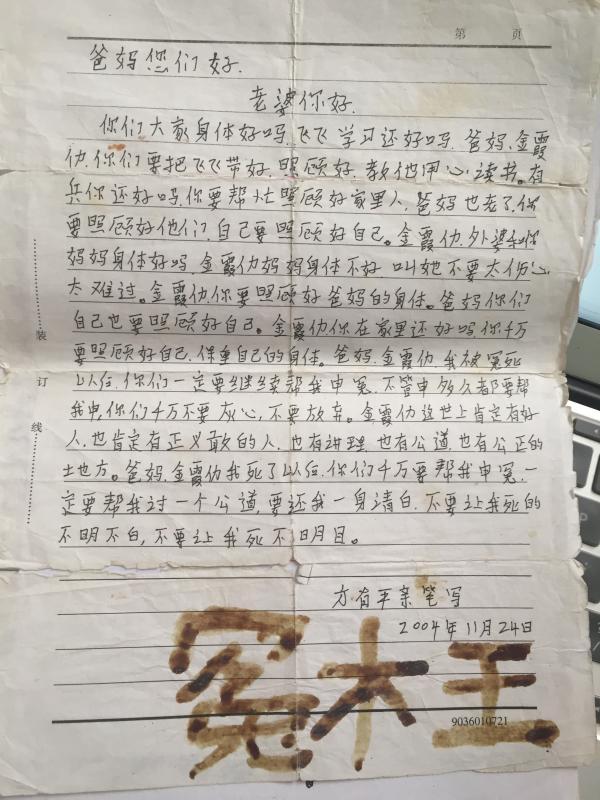 第 页
爸妈您们好.
老婆你好.
你们大家身体好吗,飞飞学习还好吗.爸妈、金霞
仂.你们要把飞飞带好.照顾好.教他用心读书。有
兵你还好吗.你要帮忙照顾好家里人,爸妈也老了.你
要照顾好他们.自己要照顾好自己。金霞仂.外婆和你
妈妈身体好吗.金霞仂妈妈身体不好 叫她不要太伤心
太难过。金霞仂.你要照顾好爸妈的身体。爸妈你们
自己也要照顾好自己。金霞仂你在家里还好吗你千万
要照顾好自己.保重自己的身体。爸妈.金霞仂.我被冤死
以后.你们一定要继续帮我申冤.不管申多久都要帮
我申.你们千万不要灰心,不要放弃。金霞仂这世上肯定有好
人.也肯定有正义敢的人.也有讲理.也有公道.也有公正的
土地方。爸妈.金霞仂我死了以后.你们千万要帮我申冤.一
定要帮我讨一个公道,要还我一身清白.不要让我死的
不明不白,不要让我死不明目。
方有平亲笔写
2004年11月24日
冤大王
9036010721
装
订
线